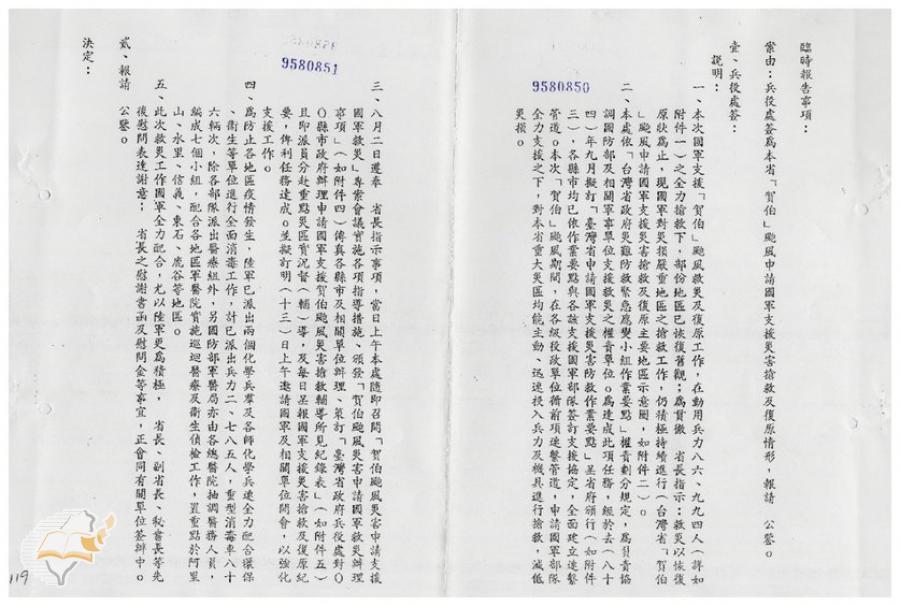 臨時報告事項：
案由：兵役處簽為本省「賀伯」颱風申請國軍支援災害搶救及復原情形，報請　公鑒。
壹、兵役處簽：
說明：
一、本次國軍支援「賀伯」颱風救災及復原工作，在動用兵力八六、九九四人（詳如
附件一）之全力搶救下，部份地區已恢復舊觀；為貫徹　省長指示：救災以恢復
原狀為止，現國軍對災損嚴重地區之搶救工作，仍積極持續進行（台灣省「賀伯
」颱風申請國軍支援災害搶救及復原主要地區示意圖，如附件二）。
二、本處依「台灣省政府災難防救緊急應變小組作業要點」權責劃分規定，為負責協
調國防部及相關軍事單位支援救災之權責單位。為達成此項任務，經於去（八十
四）年九月擬訂「臺灣省申請國軍支援災害防救作業要點」呈省府頒行（如附件
三），各縣市均已依作業要點與各該支援國軍部隊簽訂支援協定，全面建立連繫
管道。本次「賀伯」颱風期間，在各級役政單位循前項連繫管道，申請國軍部隊
全力支援之下，對本省重大災區均能主動、迅速投入兵力及機具進行搶救，減低
災損。
9580850
三、八月二日遵奉　省長指示事項，當日上午本處隨即召開「賀伯颱風災害申請支援
國軍救災」專案會議實施各項指導措施、頒發「賀伯颱風災害申請國軍救災辦理
事項」（如附件四）傳真各縣市及相關單位辦理、策訂「臺灣省政府兵役處對○
○縣市政府辦理申請國軍支援賀伯颱風災害搶救輔導所見紀錄表」（如附件五）
且即派員分赴重點災區實況督（輔）導，及每日呈報國軍支援災害搶救及復原紀
要，俾利任務達成。並擬訂明（十三）日上午邀請國軍及相關單位開會，以強化
支援工作。
9580851
四、為防止各地區疫情發生，陸軍已派出兩個化學兵羣及各師化學兵連全力配合環保
、衛生等單位進行全面消毒工作，計已派出兵力二、七八五人，重型消毒車八十
六輛次，除各部隊派出醫療組外，另國防部軍醫局亦由各總醫院抽調醫務人員，
編成七個小組，配合各地區軍醫院實施巡迴醫療及衛生偵檢工作，置重點於阿里
山、水里、信義、東石、鹿谷等地區。
五、此次救災工作國軍全力配合，尤以陸軍更為積極，　省長、副省長、秘書長等先
後慰問表達謝意；　省長之慰謝書函及慰問金等事宜，正會同有關單位簽辦中。
貳、報請　公鑒。
決定：
119